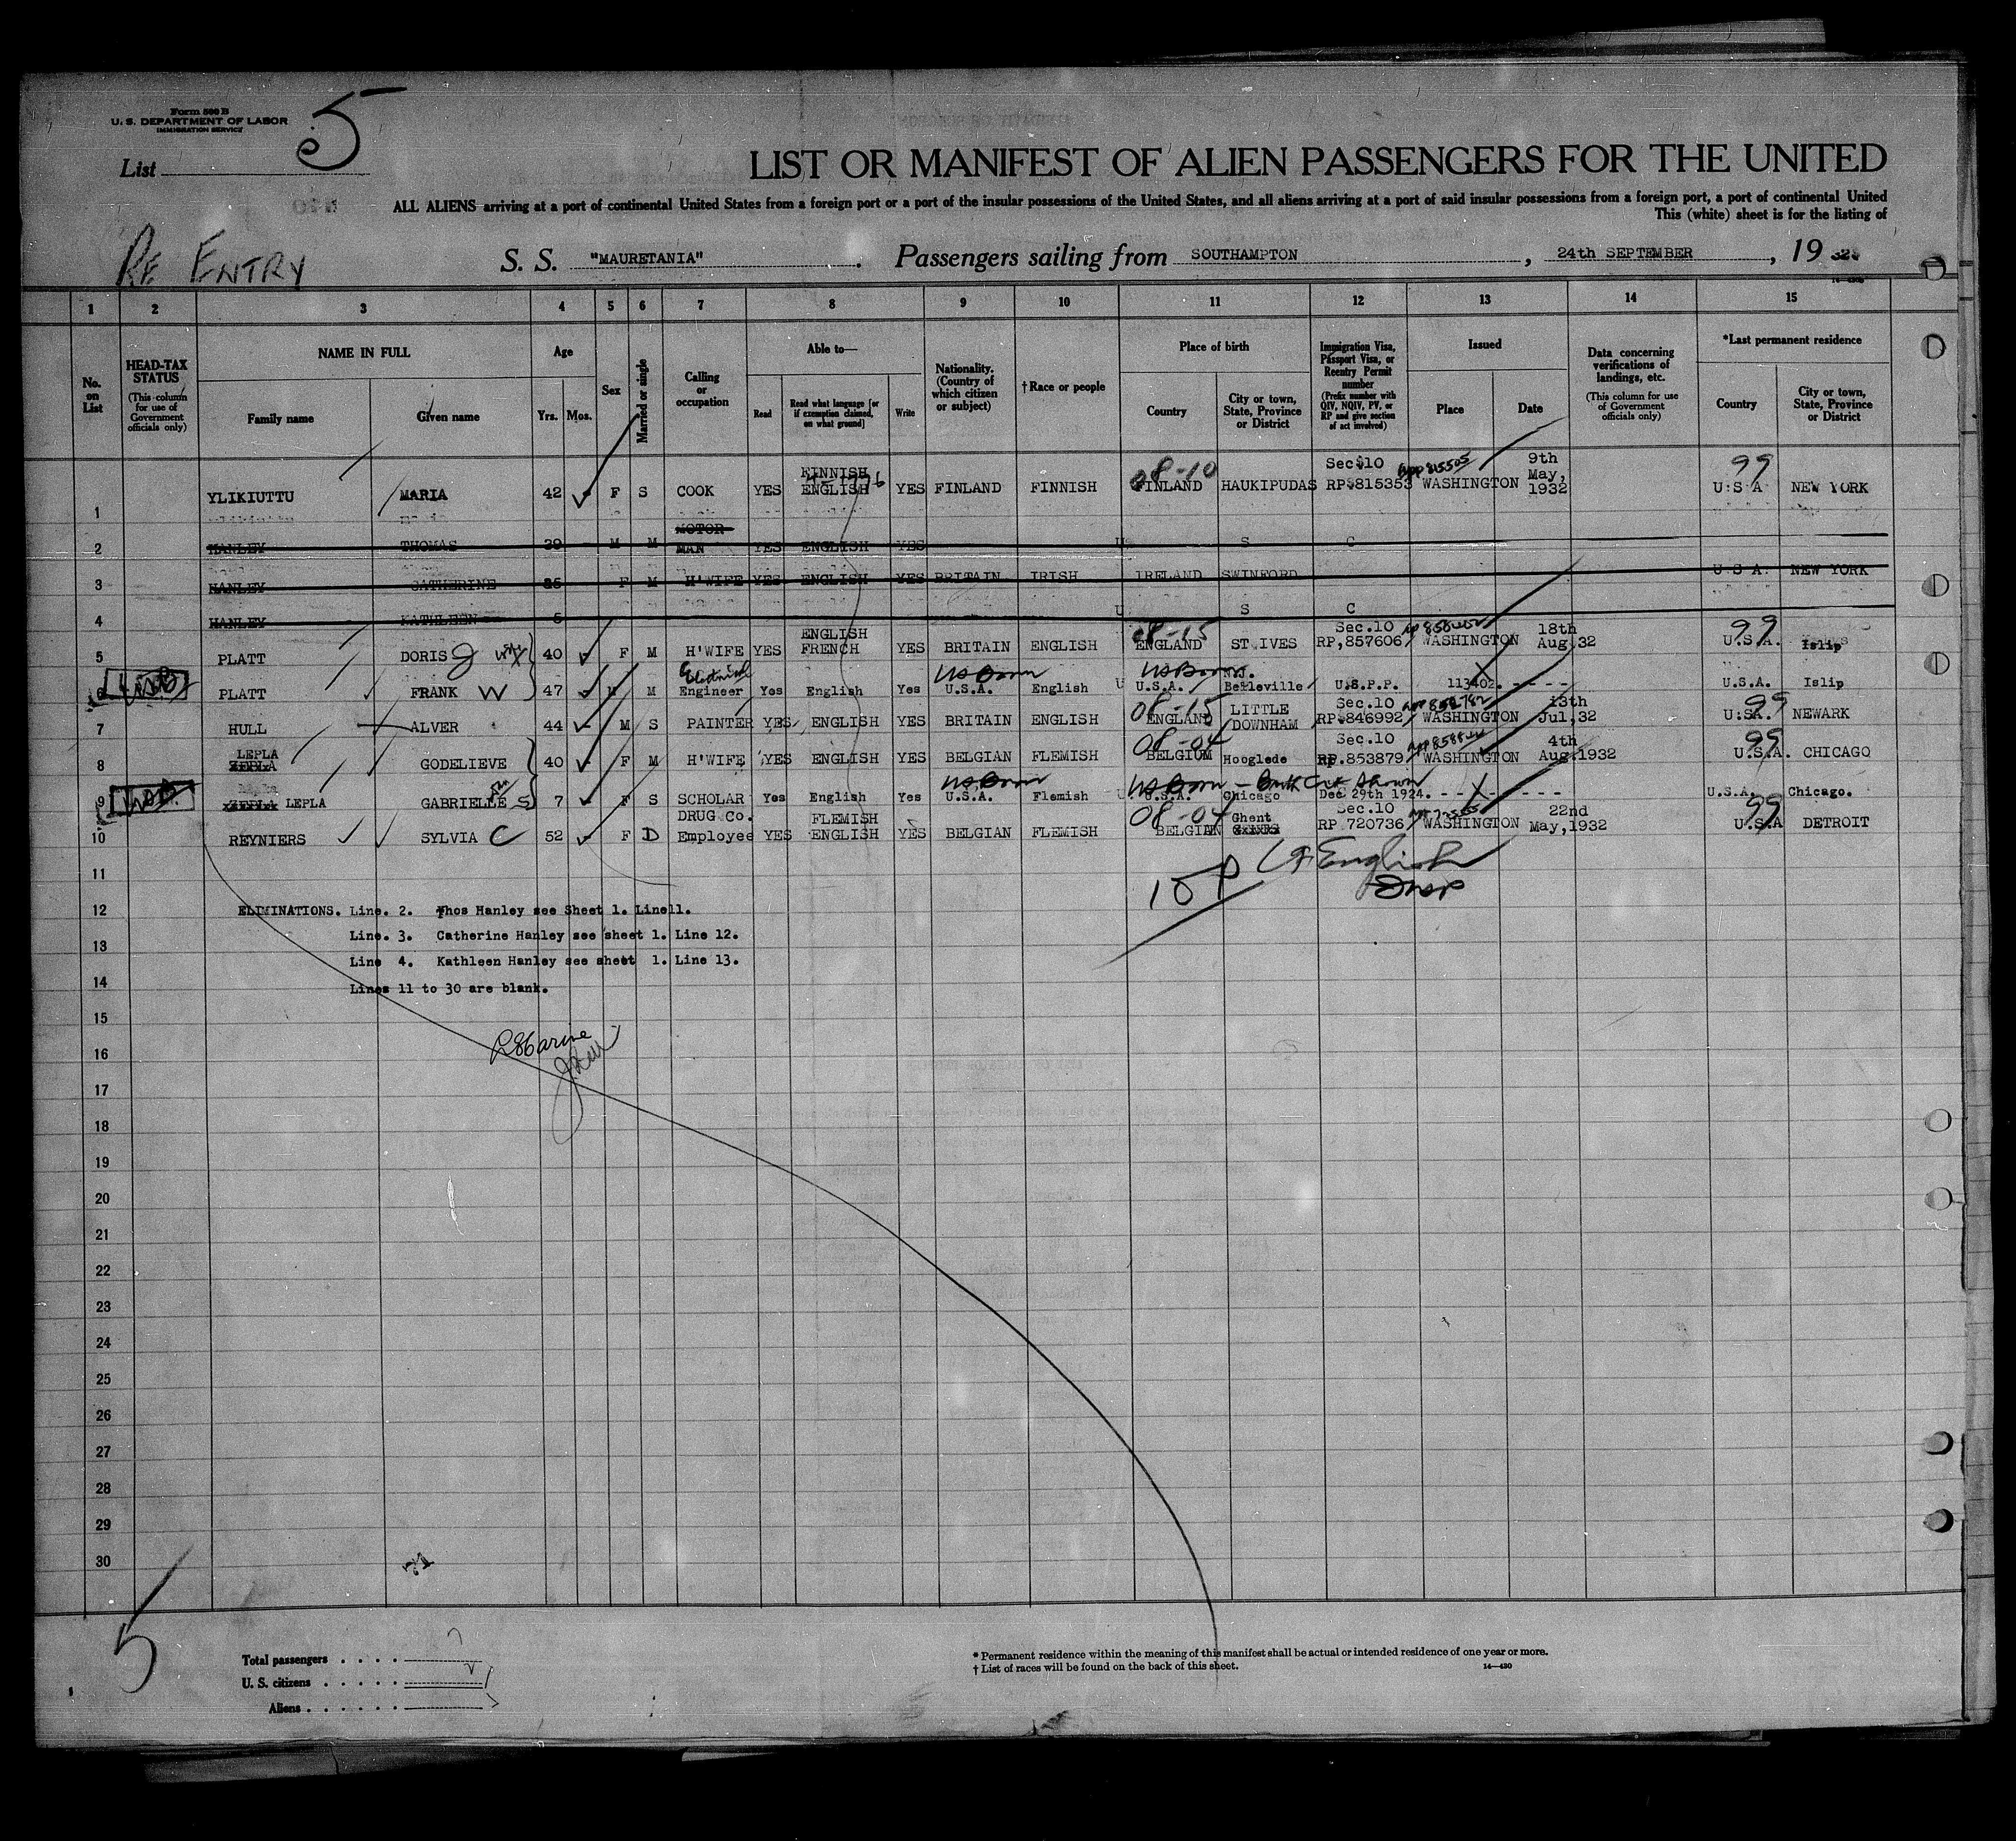 Form 500 B
U. S. DEPARTMENT OF LABOR
IMMIGRATION SERVICE
List 5
LIST OR MANIFEST OF ALIEN PASSENGERS FOR THE UNITED
ALL ALIENS arriving at a port of continental United States from a foreign port or a port of the insular possessions of the United States, and all aliens arriving at a port of said insular possessions from a foreign port, a port of continental United
This (white) sheet is for the listing of
RE ENTRY
S. S. "MAURETANIA". Passengers sailing from SOUTHAMPTON, 24th SEPTEMBER, 19 32
1 2 3 4 5 6 7 8 9 10 11 12 13 14 15
No. on List
HEAD-TAX STATUS (This column for use of Government officials only)
NAME IN FULL
Family name
Given name
Age
Yrs. Mos.
Sex
Married or single
Calling or occupation
Able to—
Read
Read what language [or if exemption claimed, on what ground]
Write
Nationality. (Country of which citizen or subject)
†Race or people
Place of birth
Country
City or town, State, Province or District
Immigration Visa, Passport Visa, or Reentry Permit number (Prefix number with QIV, NQIV, PV, or RP and give section of act involved)
Issued
Place
Date
Data concerning verifications of landings, etc. (This column for use of Government officials only)
*Last permanent residence
Country
City or town, State, Province or District
1 YLIKIUTTU MARIA 42 F S COOK YES FINNISH ENGLISH YES FINLAND FINNISH 08-10 FINLAND HAUKIPUDAS Sec.10 RP.815353 WASHINGTON 9th May, 1932 99 U.S.A NEW YORK
2 HANLEY THOMAS 39 M M MOTOR MAN YES ENGLISH YES U S C
3 HANLEY CATHERINE 36 F M H'WIFE YES ENGLISH YES BRITAIN IRISH IRELAND SWINFORD U.S.A. NEW YORK
4 HANLEY KATHLEEN 5 U S C
5 PLATT DORIS J 40 F M H'WIFE YES ENGLISH FRENCH YES BRITAIN ENGLISH 08-15 ENGLAND ST.IVES Sec.10 RP,857606 WASHINGTON 18th Aug,32 99 U.S.A. Islip
6 PLATT FRANK W 47 M M Electrical Engineer Yes English Yes US Born U.S.A. English US Born U.S.A. N.J. Belleville U.S.P.P. 113402. - - - - U.S.A. Islip
7 HULL ALVER 44 M S PAINTER YES ENGLISH YES BRITAIN ENGLISH 08-15 ENGLAND LITTLE DOWNHAM Sec.10 RP.846992 WASHINGTON 13th Jul,32 99 U.S.A. NEWARK
8 LEPLA GODELIEVE 40 F M H'WIFE YES ENGLISH YES BELGIAN FLEMISH 08-04 BELGIUM Hooglede Sec.10 RP.853879 WASHINGTON 4th Aug.1932 99 U.S.A. CHICAGO
9 LEPLA GABRIELLE S 7 F S SCHOLAR Yes English Yes US Born U.S.A. Flemish US Born - Birth Cert Shown U.S.A. Chicago Dec 29th 1924. - - - - - U.S.A. Chicago.
10 REYNIERS SYLVIA C 52 F D DRUG Co. Employee YES FLEMISH ENGLISH YES BELGIAN FLEMISH 08-04 BELGIAN Ghent Sec.10 RP 720736 WASHINGTON 22nd May,1932 99 U.S.A DETROIT
11
12 ELIMINATIONS. Line. 2. Thos Hanley see Sheet 1. Line11.
13 Line. 3. Catherine Hanley see sheet 1. Line 12.
Line 4. Kathleen Hanley see sheet 1. Line 13.
14 Lines 11 to 30 are blank.
15
16
17
18
19
20
21
22
23
24
25
26
27
28
29
30
5
Total passengers . . . .
U. S. citizens . . . . .
Aliens . . . . . .
* Permanent residence within the meaning of this manifest shall be actual or intended residence of one year or more.
† List of races will be found on the back of this sheet.
14—430